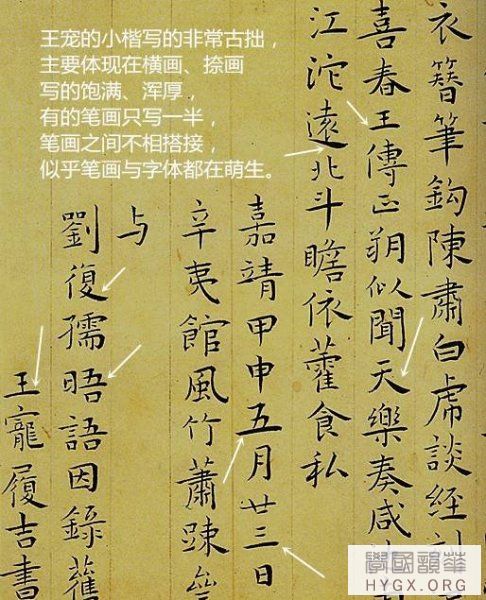 王宠的小楷写的非常古拙，
主要体现在横画、捺画
写的饱满、浑厚，
有的笔画只写一半，
笔画之间不相搭接，
似乎笔画与字体都在萌生。
衣簪筆鈎陳肅白虎談經
喜春王傳正朔似聞天樂奏咸
江沱遠北斗瞻依藿食私
嘉靖甲申五月廿三日
辛夷館風竹蕭踈
与
劉復孺晤語因錄舊
王寵履吉書
學國韻華
HYGX.ORG